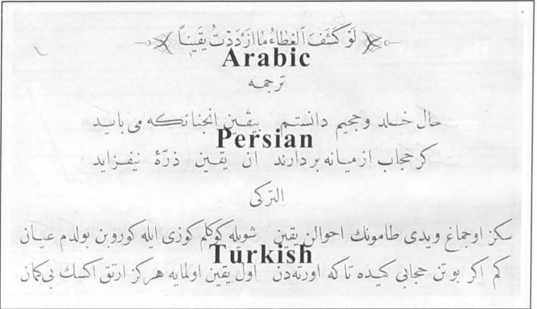 لَوْ كُشِفَ الْغِطَاءُ مَا ازْدَدْتُ يَقِيناً
Arabic
ترجمه
حال خلد وجحیم دانستم بیقین انجنانکه می باید
Persian
کر حجاب از میانه بردارند ان یقین ذرّهٔ نیفزاید
الترکی
سکز اوجماغ ویدی طامونك احوالن یقین شویله کوکلم کوزی ایله کوروبن بولدم عیان
Turkish
کم اکر بو تن حجابی کیده تاکه اورتهدن اول یقین اولمایه هرکز ارتق اکسك بی کمان